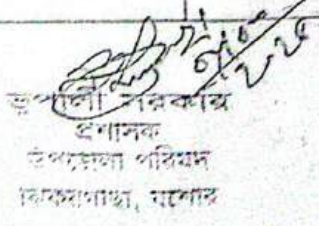 ভূপালী সরকার
প্রশাসক
উপজেলা পরিষদ
ঝিকরগাছা, যশোর